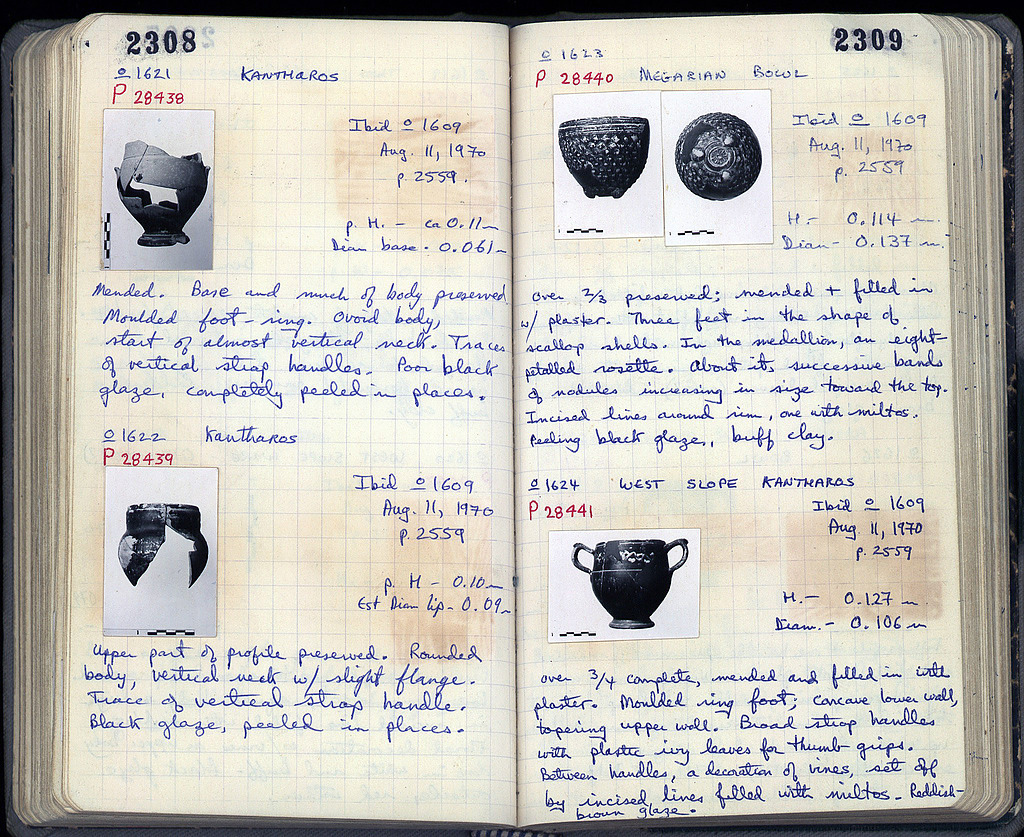 2308
o 1621 KANTHAROS
P 28438
Ibid o 1609
Aug. 11, 1970
p. 2559.
p. H. - ca 0.11 m
Diam base - 0.061 m
Mended. Base and much of body preserved
Moulded foot-ring. Ovoid body,
start of almost vertical neck. Traces
of vertical strap handles. Poor black
glaze, completely peeled in places.
o 1622 Kantharos
P 28439
Ibid o 1609
Aug. 11, 1970
p. 2559
p. H - 0.10 m
Est Diam lip - 0.09 m
Upper part of profile preserved. Rounded
body, vertical neck w/ slight flange.
Trace of vertical strap handle.
Black glaze, peeled in places.
2309
o 1623
P 28440 MEGARIAN BOWL
Ibid o 1609
Aug. 11, 1970
p. 2559
H. - 0.114 m.
Diam - 0.137 m.
over 2/3 preserved; mended + filled in
w/ plaster. Three feet in the shape of
scallop shells. In the medallion, an eight-
petalled rosette. About it, successive bands
of nodules increasing in size toward the top.
Incised lines around rim, one with miltos.
Peeling black glaze, buff clay.
o 1624 WEST SLOPE KANTHAROS
P 28441
Ibid o 1609
Aug 11, 1970
p. 2559
H. - 0.127 m.
Diam. - 0.106 m
over 3/4 complete, mended and filled in with
plaster. Moulded ring foot; concave lower wall,
tapering upper wall. Broad strap handles
with plastic ivy leaves for thumb-grips.
Between handles, a decoration of vines, set off
by incised lines filled with miltos. Reddish-
brown glaze.